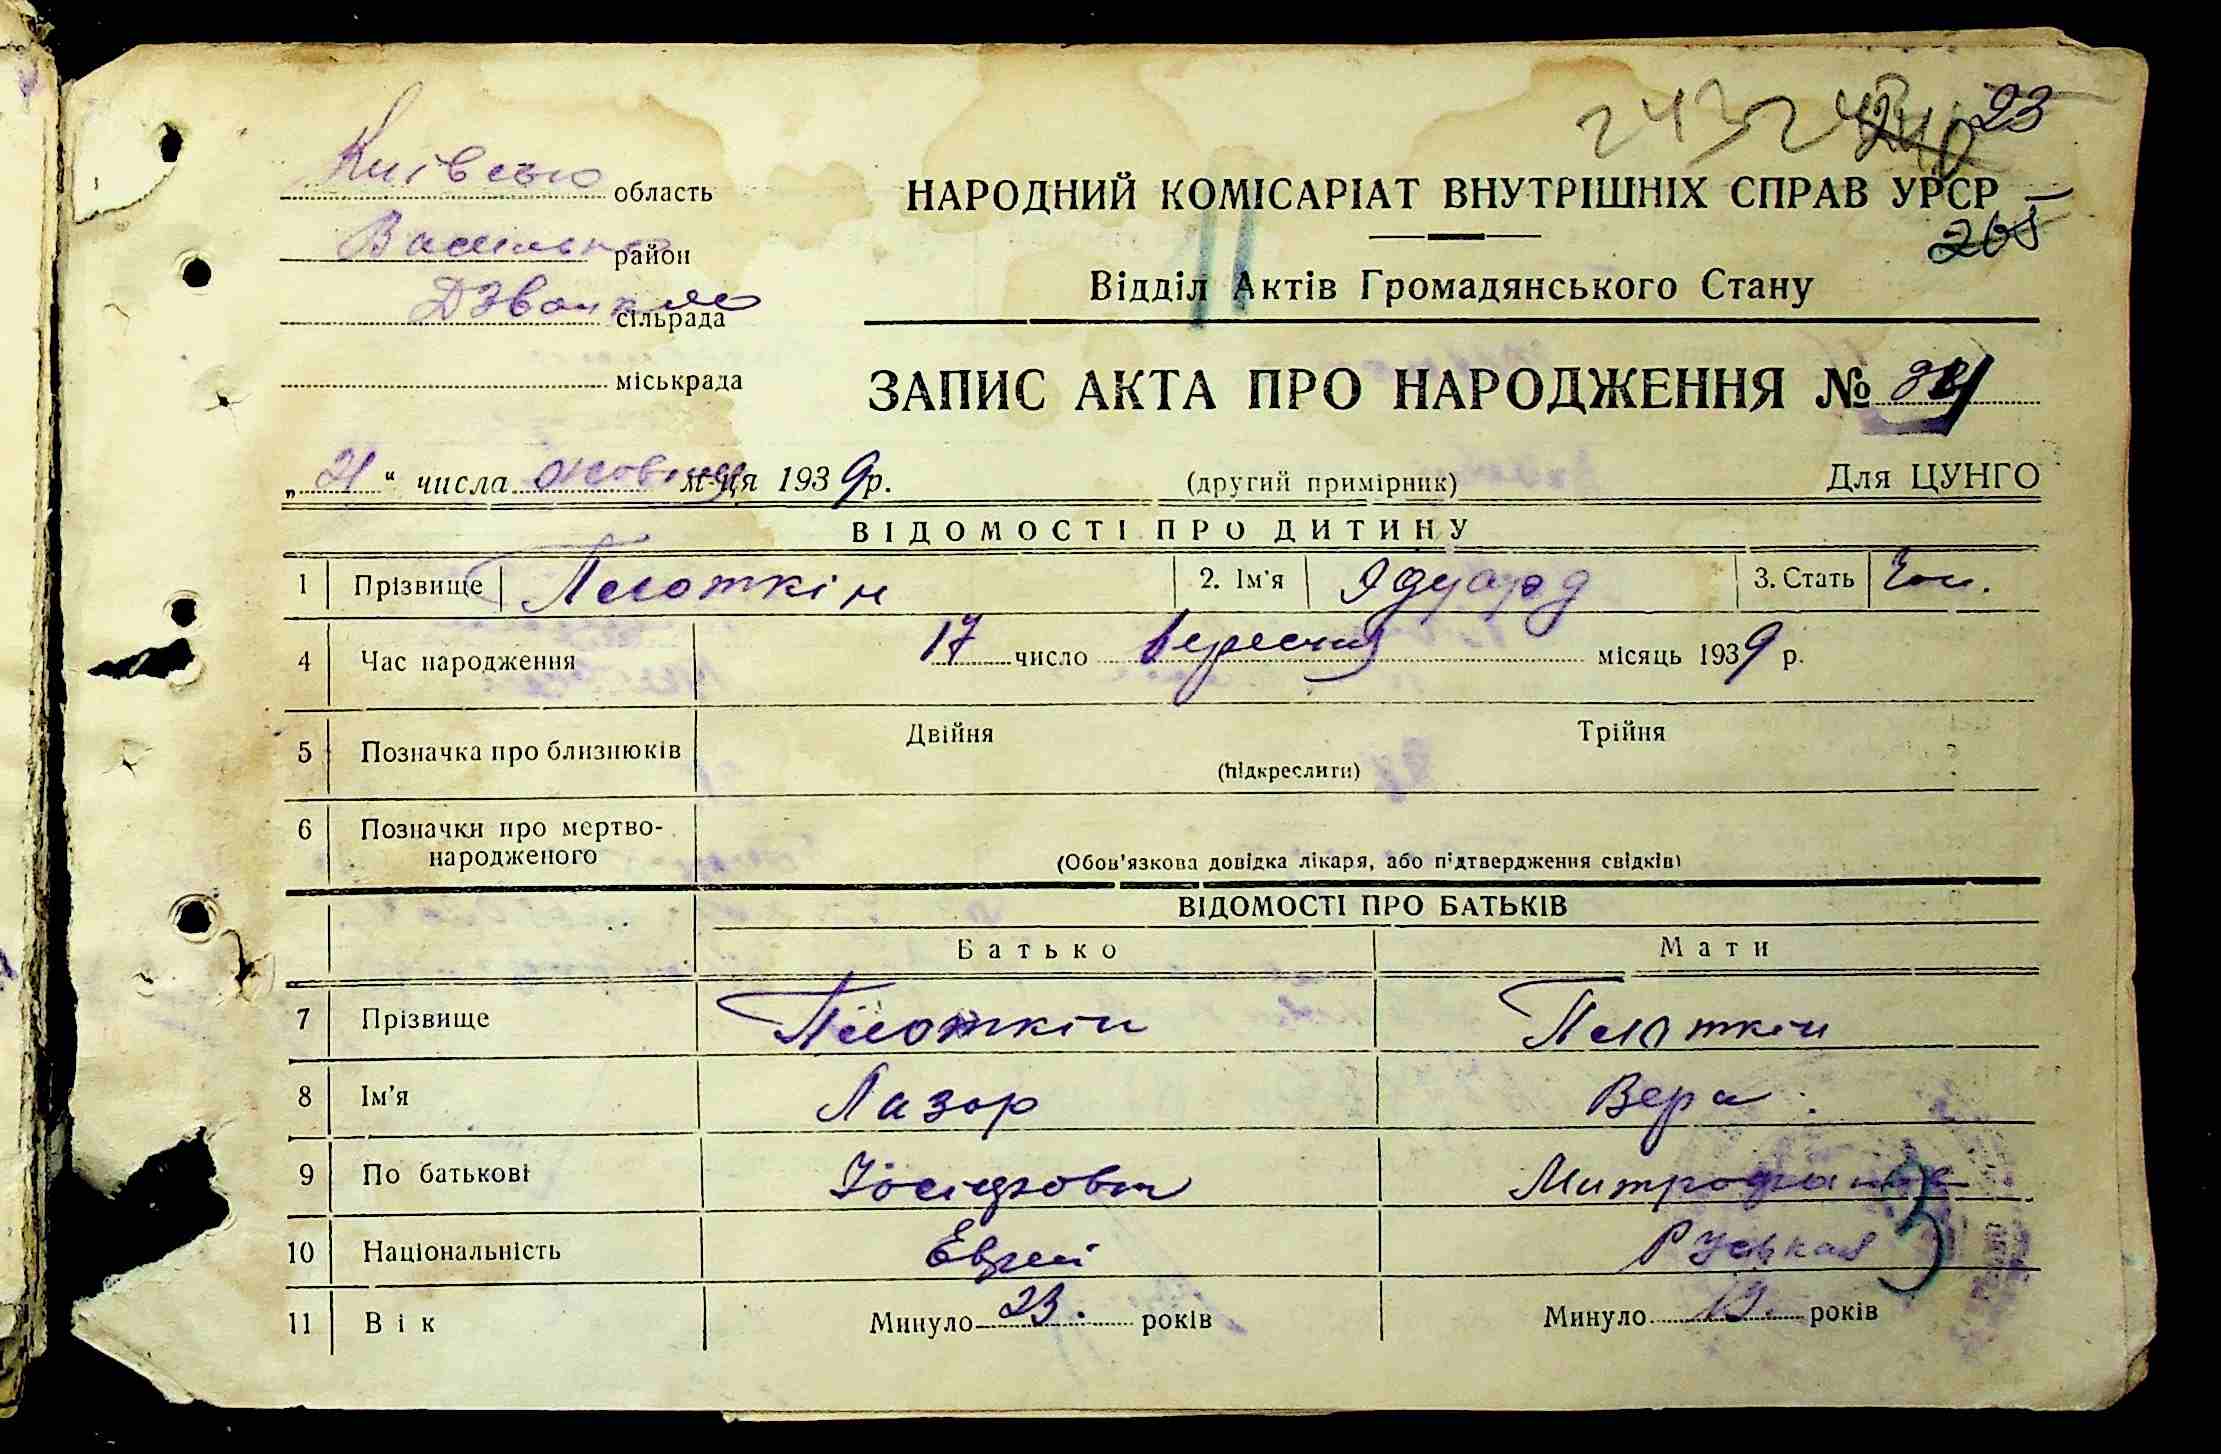 243 23
НАРОДНИЙ КОМІСАРІАТ ВНУТРІШНІХ СПРАВ УРСР
265
Відділ Актів Громадянського Стану
Київсько область
Василько район
Дзвонкяо сільрада
міськрада
ЗАПИС АКТА ПРО НАРОДЖЕННЯ №
„21“ числа жовтня м-ця 1939р.
(другий примірник)
Для ЦУНГО
ВІДОМОСТІ ПРО ДИТИНУ
1 Прізвище Плоткін 2. Ім'я Эдуард 3. Стать Чол.
4 Час народження 17 число вересня місяць 1939 р.
5 Позначка про близнюків Двійня Трійня
(підкреслити)
6 Позначки про мертво-
народженого
(Обов'язкова довідка лікаря, або підтвердження свідків)
ВІДОМОСТІ ПРО БАТЬКІВ
Батько Мати
7 Прізвище Плоткін Плоткін
8 Ім'я Лазор Вера
9 По батькові Йосипович
10 Національність Еврей Руськая
11 Вік Минуло 23. років Минуло 19. років
3